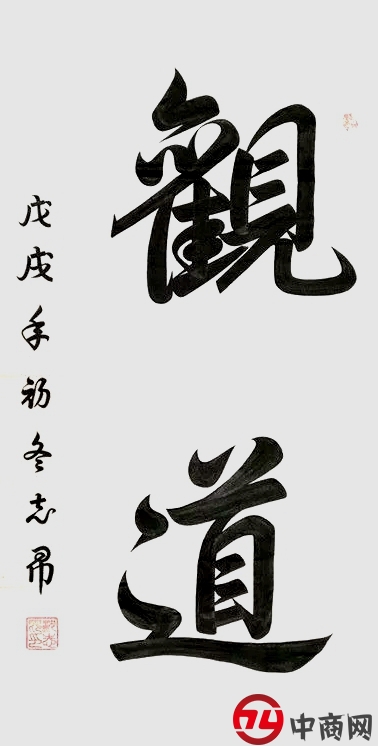 觀道
戊戌年初冬志
74 中商网